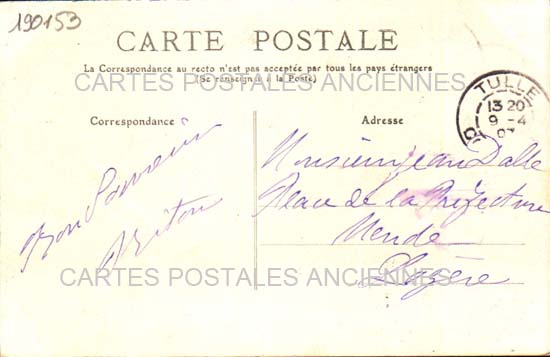 190153
CARTE POSTALE
La Correspondance au recto n'est pas acceptée par tous les pays étrangers
(Se renseigner à la Poste)
CARTES POSTALES ANCIENNES
TULLE
13 20
9 - 4
07
Correspondance
Adresse
Bon Souvenir
Monsieur Jean Dalle
Place de la Préfecture
Mende
CARTES POSTALES ANCIENNES
Lozère